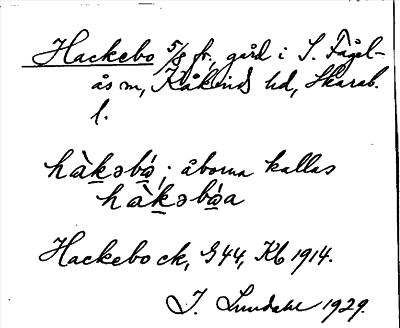 Hackebo 5/8 fr., gård i S. Fågel-
ås sn, Kåkinds hd, Skarab.
l.
hàkəbó; åborna kallas
hàkəbóa
Hackebo ck, G44, Kb 1914.
J. Lundahl 1929.